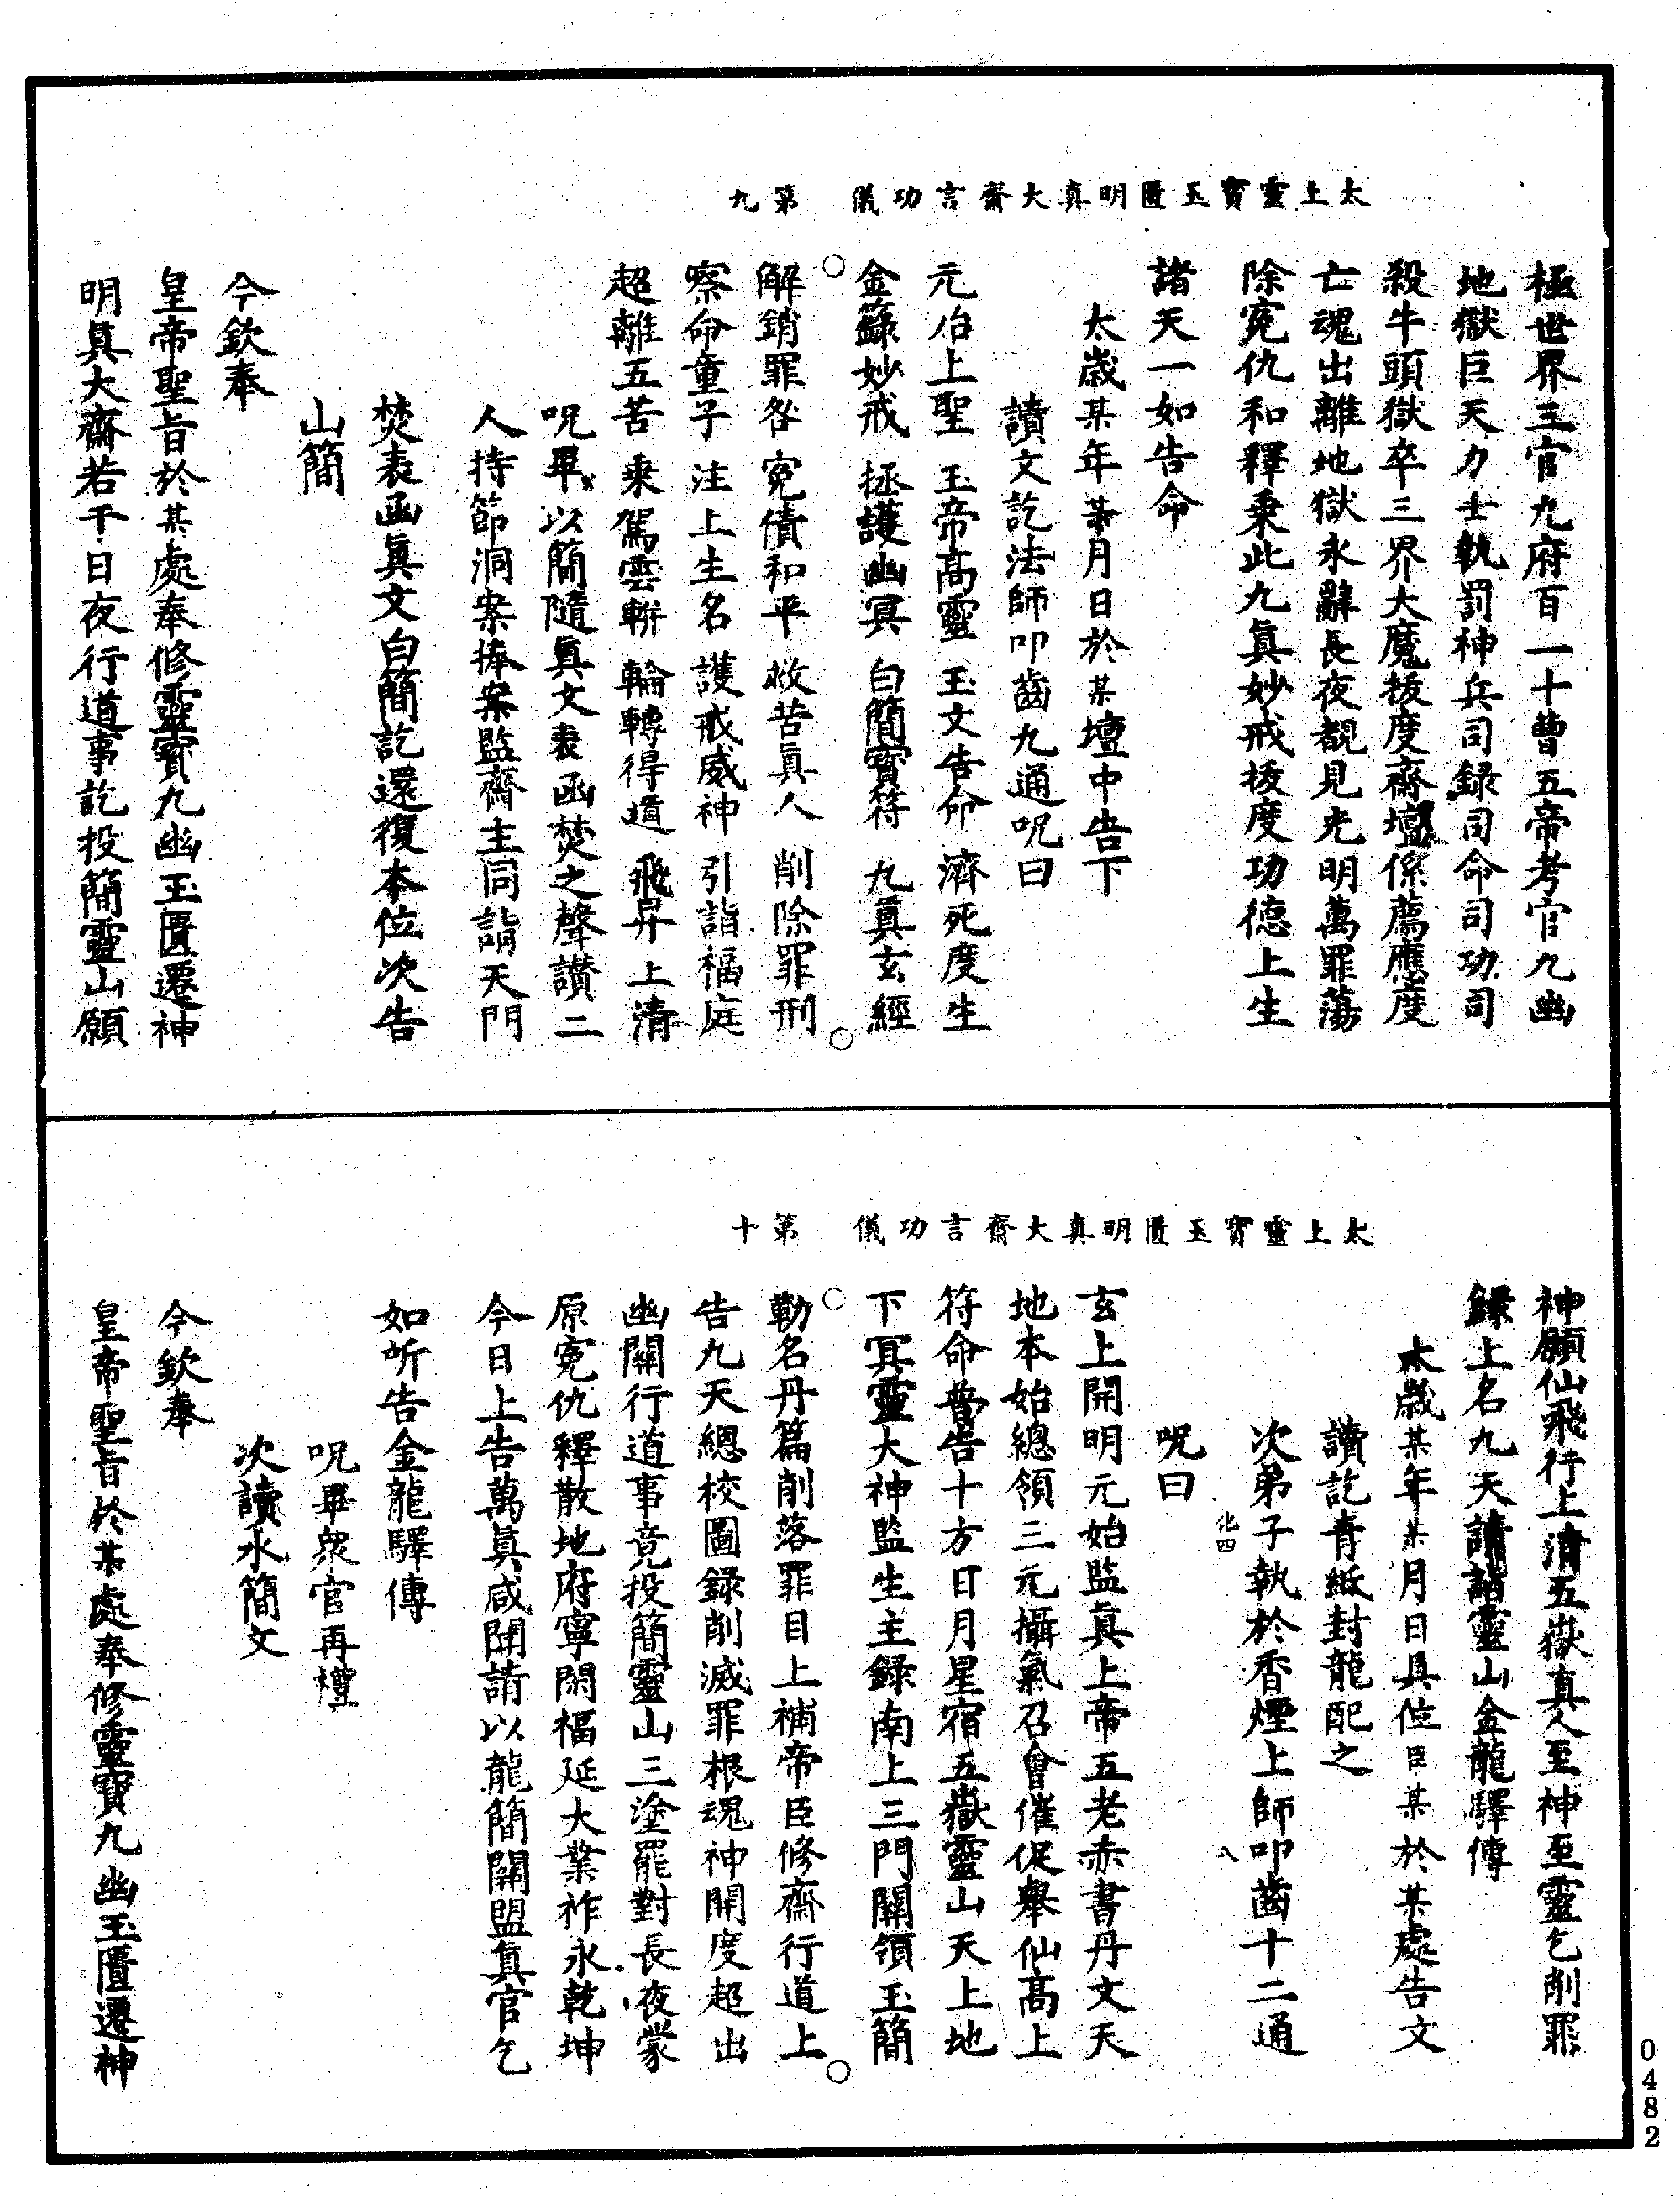 太上靈寶玉匱明真大齋言功儀　第九
極世界三官九府百一十曹五帝考官九幽
地獄巨天力士執罰神兵司錄司命司功司
殺牛頭獄卒三界大魔拔度齋壇係薦應度
亡魂出離地獄永辭長夜覩見光明萬罪蕩
除寃仇和釋乗此九真妙戒拔度功德上生
諸天一如告命
太歲某年某月日於某壇中告下
讀文訖法師叩齒九通呪曰
元始上聖　玉帝高靈　玉文告命　濟死度生
金籙妙戒　拯護幽冥　白簡寶符　九真玄經
解銷罪咎　寃債和平　救苦真人　削除罪刑
察命童子　注上生名　護戒威神　引詣福庭
超離五苦　乗駕雲軿　輪轉得道　飛昇上清
呪畢以簡隨真文表函焚之聲讃二
人持節洞案捧案監齋主同詣天門
焚表函真文白簡訖還復本位次告
山簡
今欽奉
皇帝聖旨於某處奉修靈寶九幽玉匱遷神
明真大齋若干日夜行道事訖投簡靈山願
太上靈寶玉匱明真大齋言功儀　第十
神願仙飛行上清五嶽真人至神至靈乞削罪
錄上名九天請詣靈山金龍驛傳
太歲某年某月日具位臣某於某處告文
讀訖青紙封龍配之
次弟子執於香煙上師叩齒十二通
化四　八
呪曰
玄上開明元始監真上帝五老赤書丹文天
地本始總領三元攝氣召會催促舉仙高上
符命普告十方日月星宿五嶽靈山天上地
下冥靈大神監生主錄南上三門關領玉簡
勒名丹篇削落罪目上補帝臣修齋行道上
告九天總校圖錄削滅罪根魂神開度超出
幽關行道事竟投簡靈山三塗罷對長夜蒙
原寃仇釋散地府寧閑福延大業祚永乾坤
今日上告萬真咸聞請以龍簡關盟真官乞
如所告金龍驛傳
呪畢衆官再禮
次讀水簡文
今欽奉
皇帝聖旨於某處奉修靈寶九幽玉匱遷神
0482